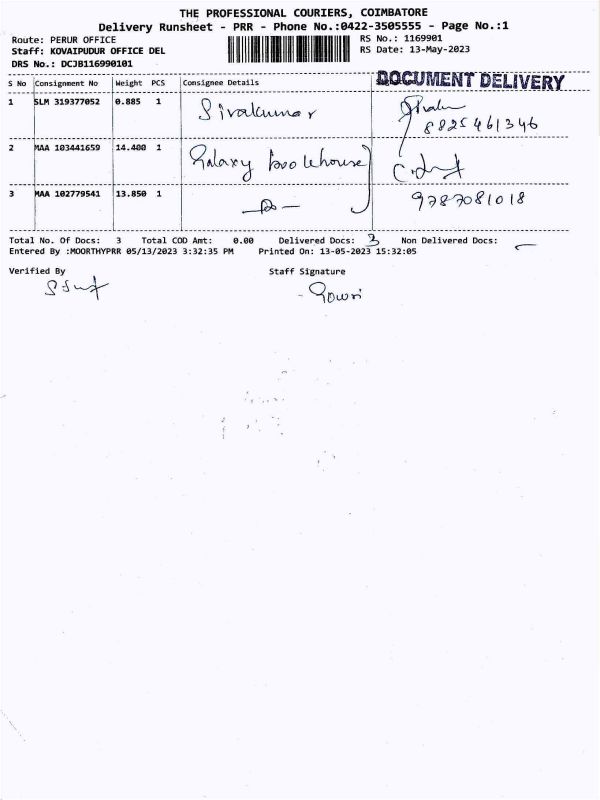 THE PROFESSIONAL COURIERS, COIMBATORE
Delivery Runsheet - PRR - Phone No.:0422-3505555 - Page No.:1
Route: PERUR OFFICE
Staff: KOVAIPUDUR OFFICE DEL
DRS No.: DCJB116990101
RS No.: 1169901
RS Date: 13-May-2023
DOCUMENT DELIVERY
S No Consignment No Weight PCS Consignee Details
1 SLM 319377052 0.885 1 Sivakumar
8825461346
2 MAA 103441659 14.400 1 Galaxy
3 MAA 102779541 13.850 1 9787081018
Total No. Of Docs: 3 Total COD Amt: 0.00 Delivered Docs: 3 Non Delivered Docs: -
Entered By :MOORTHYPRR 05/13/2023 3:32:35 PM Printed On: 13-05-2023 15:32:05
Verified By Staff Signature
Gowri